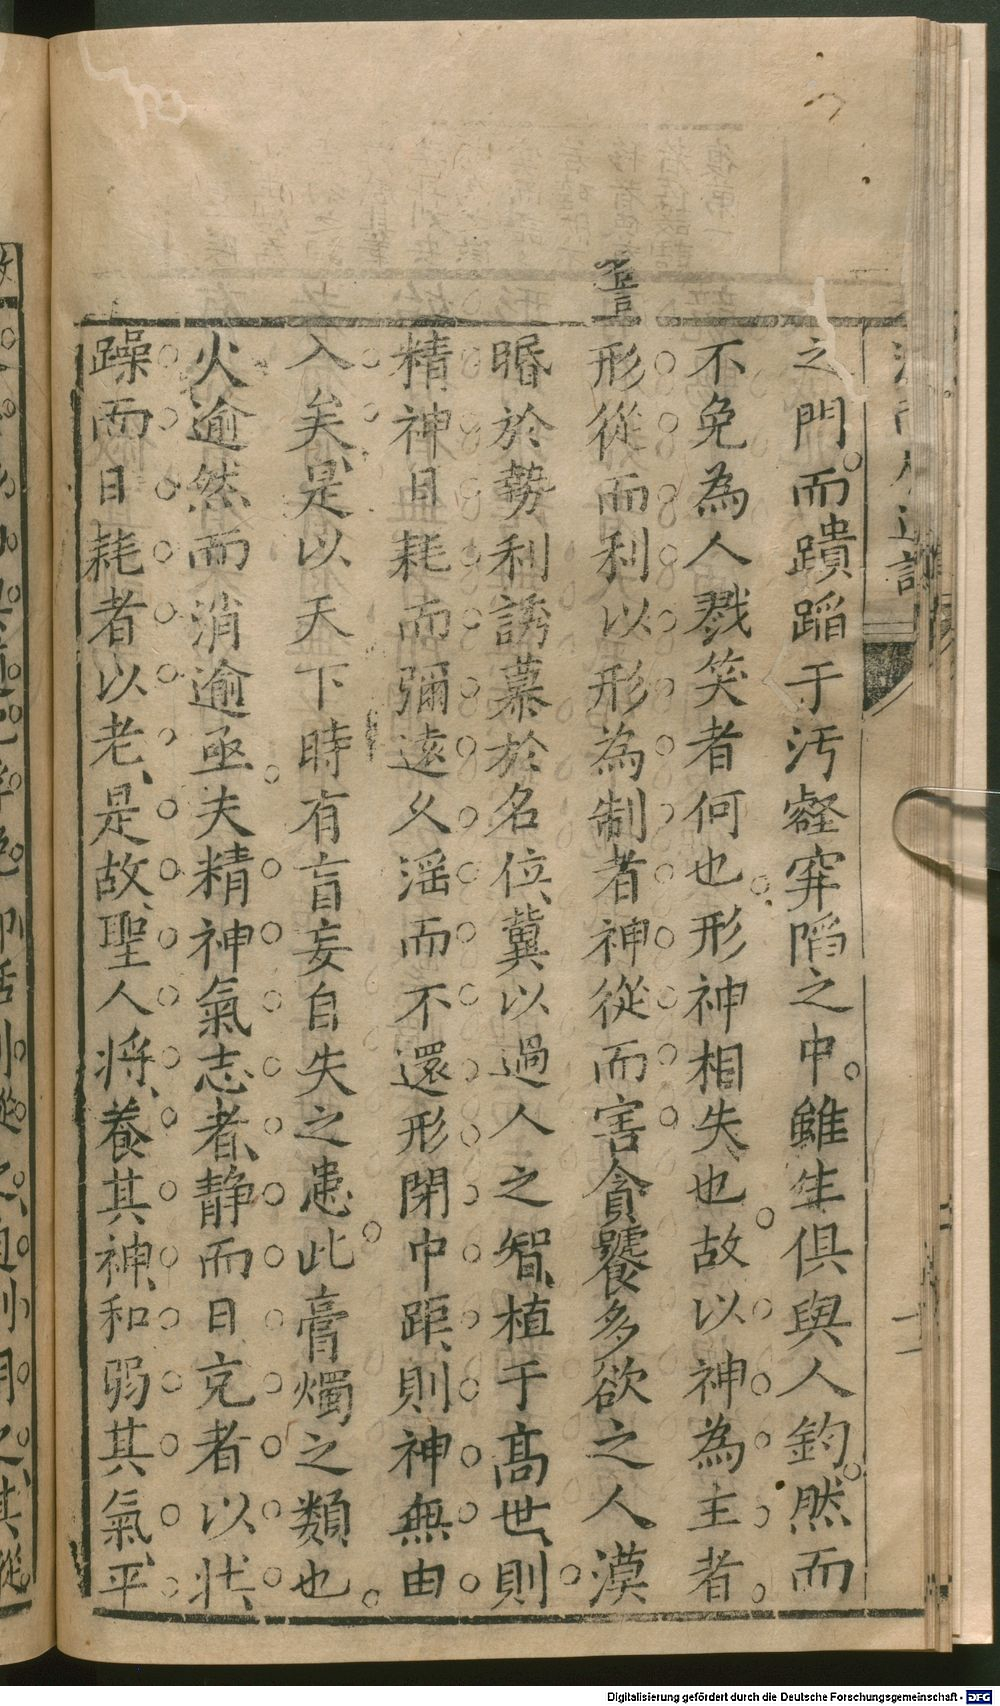 之門而蹪蹈于汚壑穽陷之中雖生俱與人鈞然而
不免為人戮笑者何也形神相失也故以神為主者
形從而利以形為制者神從而害貪饕多欲之人漠
㬙於勢利誘慕於名位兾以過人之智植于髙世則
精神日耗而彌遠乆淫而不還形閉中距則神無由
入矣是以天下時有盲妄自失之患此膏燭之類也
火逾然而消逾亟夫精神氣志者静而日充者以壮
躁而日耗者以老是故聖人將養其神和弱其氣平
Digitalisierung gefördert durch die Deutsche Forschungsgemeinschaft - DFG